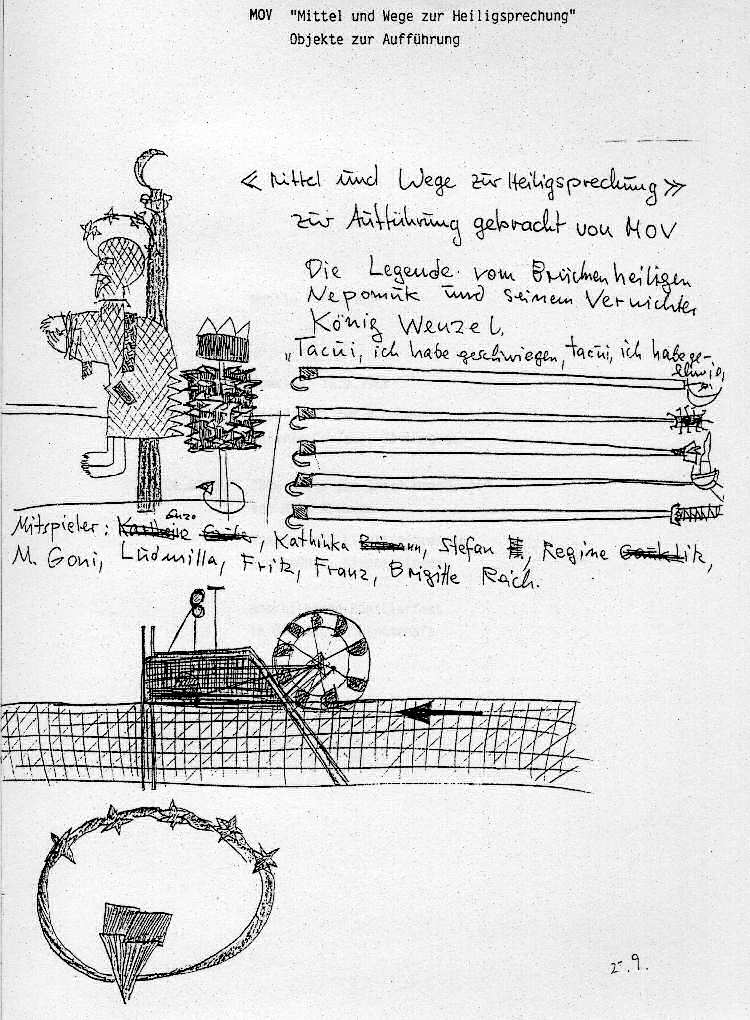 MOV "Mittel und Wege zur Heiligsprechung"
Objekte zur Aufführung
« Mittel und Wege zur Heiligsprechung »
zur Aufführung gebracht von MOV
Die Legende vom Brückenheiligen
Nepomuk und seinem Vernichter
König Wenzel.
"Tacui, ich habe geschwiegen, tacui, ich habe ge-
Mitspieler: Enzo, Kathinka, Stefan, Regine,
M. Goni, Ludmilla, Fritz, Franz, Brigitte Reich.
9.